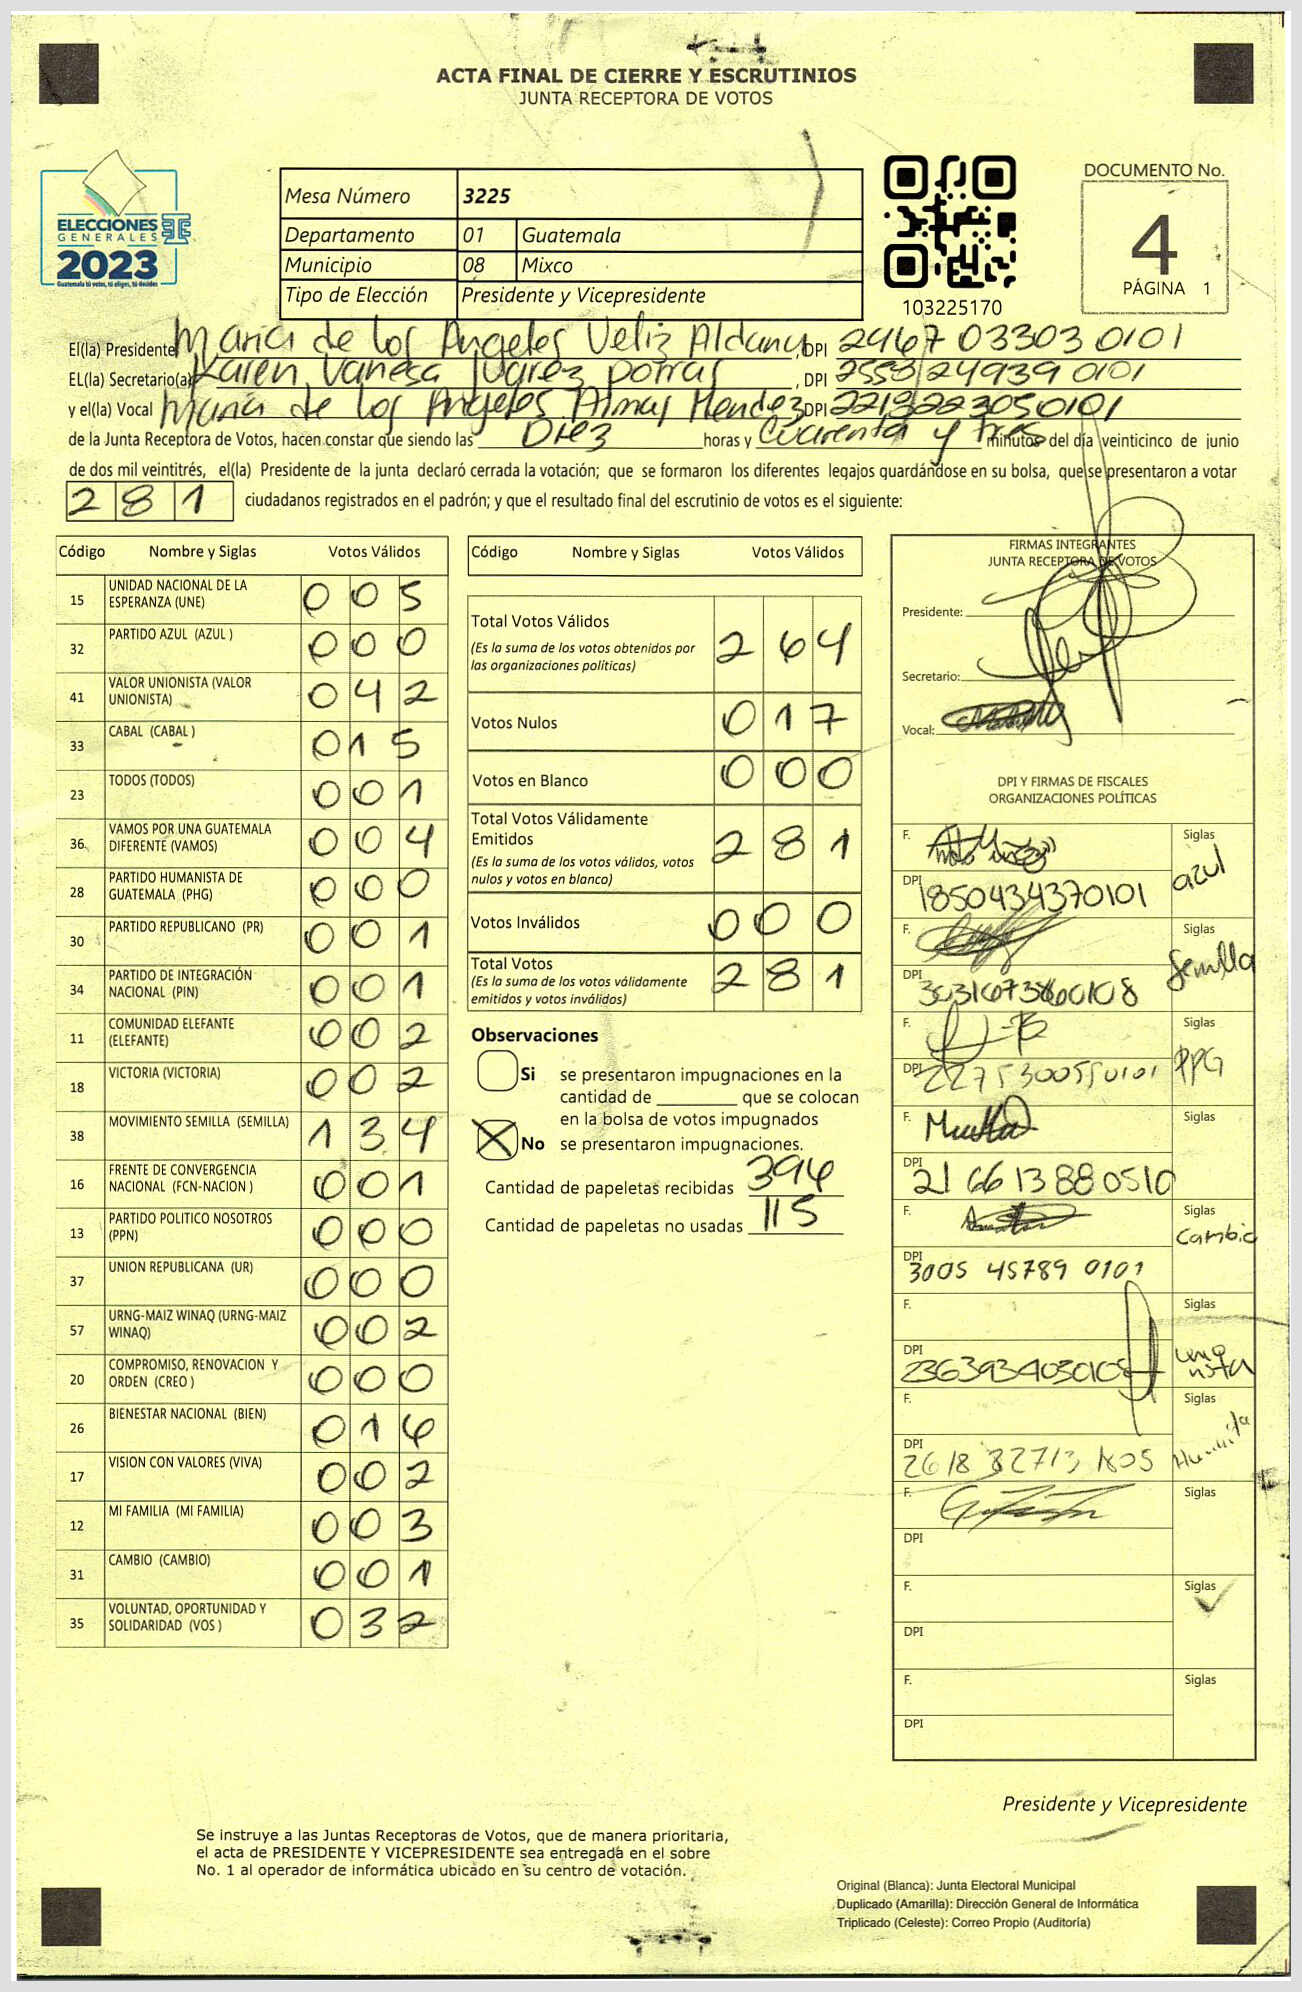 ACTA FINAL DE CIERRE Y ESCRUTINIOS
JUNTA RECEPTORA DE VOTOS
ELECCIONES
GENERALES
2023
Guatemala tú votas, tú eliges, tú decides
Mesa Número 3225
Departamento 01 Guatemala
Municipio 08 Mixco
Tipo de Elección Presidente y Vicepresidente
103225170
DOCUMENTO No.
4
PÁGINA 1
El(la) Presidente Maria de los Angeles Veliz Aldana, DPI 2467 03303 0101
EL(la) Secretario(a) Karen Vanesa Juarez Porras, DPI 2558 24939 0101
y el(la) Vocal Maria de los Angeles Almas Mendez, DPI 2213223050101
de la Junta Receptora de Votos, hacen constar que siendo las Diez horas y Cuarenta y tres minutos del día veinticinco de junio
de dos mil veintitrés, el(la) Presidente de la junta declaró cerrada la votación; que se formaron los diferentes legajos guardándose en su bolsa, que se presentaron a votar
281 ciudadanos registrados en el padrón; y que el resultado final del escrutinio de votos es el siguiente:
Código Nombre y Siglas Votos Válidos
15 UNIDAD NACIONAL DE LA ESPERANZA (UNE) 005
32 PARTIDO AZUL (AZUL ) 000
41 VALOR UNIONISTA (VALOR UNIONISTA) 042
33 CABAL (CABAL ) 015
23 TODOS (TODOS) 001
36 VAMOS POR UNA GUATEMALA DIFERENTE (VAMOS) 004
28 PARTIDO HUMANISTA DE GUATEMALA (PHG) 000
30 PARTIDO REPUBLICANO (PR) 001
34 PARTIDO DE INTEGRACIÓN NACIONAL (PIN) 001
11 COMUNIDAD ELEFANTE (ELEFANTE) 002
18 VICTORIA (VICTORIA) 002
38 MOVIMIENTO SEMILLA (SEMILLA) 134
16 FRENTE DE CONVERGENCIA NACIONAL (FCN-NACION ) 001
13 PARTIDO POLITICO NOSOTROS (PPN) 000
37 UNION REPUBLICANA (UR) 000
57 URNG-MAIZ WINAQ (URNG-MAIZ WINAQ) 002
20 COMPROMISO, RENOVACION Y ORDEN (CREO ) 000
26 BIENESTAR NACIONAL (BIEN) 016
17 VISION CON VALORES (VIVA) 002
12 MI FAMILIA (MI FAMILIA) 003
31 CAMBIO (CAMBIO) 001
35 VOLUNTAD, OPORTUNIDAD Y SOLIDARIDAD (VOS ) 032
Código Nombre y Siglas Votos Válidos
Total Votos Válidos 264
(Es la suma de los votos obtenidos por
las organizaciones políticas)
Votos Nulos 017
Votos en Blanco 000
Total Votos Válidamente
Emitidos 281
(Es la suma de los votos válidos, votos
nulos y votos en blanco)
Votos Inválidos 000
Total Votos 281
(Es la suma de los votos válidamente
emitidos y votos inválidos)
Observaciones
Si se presentaron impugnaciones en la
cantidad de ________ que se colocan
en la bolsa de votos impugnados
X No se presentaron impugnaciones.
Cantidad de papeletas recibidas 396
Cantidad de papeletas no usadas 115
FIRMAS INTEGRANTES
JUNTA RECEPTORA DE VOTOS
Presidente:
Secretario:
Vocal:
DPI Y FIRMAS DE FISCALES
ORGANIZACIONES POLÍTICAS
F. Siglas azul
DPI 1850434370101
F. Siglas Semilla
DPI
F. Siglas PPG
DPI
F. Siglas
DPI 21 66 13 88 0510
F. Siglas Cambio
DPI 3005 45789 0101
F. Siglas unionista
DPI 2363934030108
F. Siglas
DPI
F. Siglas
DPI
F. Siglas
DPI
F. Siglas
DPI
Presidente y Vicepresidente
Se instruye a las Juntas Receptoras de Votos, que de manera prioritaria,
el acta de PRESIDENTE Y VICEPRESIDENTE sea entregada en el sobre
No. 1 al operador de informática ubicado en su centro de votación.
Original (Blanca): Junta Electoral Municipal
Duplicado (Amarilla): Dirección General de Informática
Triplicado (Celeste): Correo Propio (Auditoría)